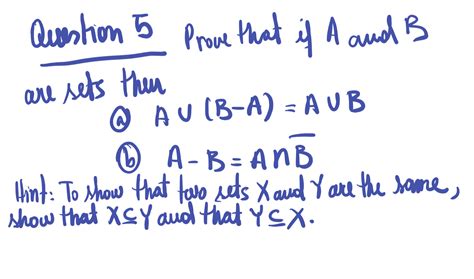 Question 5 Prove that if A and B
are sets then
ⓐ A ∪ (B-A) = A ∪ B
ⓑ A - B = A ∩ B̅
Hint: To show that two sets X and Y are the same,
show that X ⊆ Y and that Y ⊆ X.